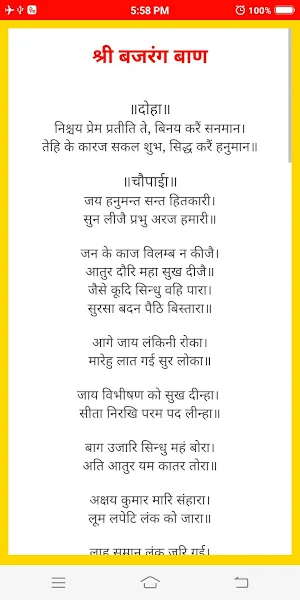 5:58 PM
100%
श्री बजरंग बाण
॥दोहा॥
निश्चय प्रेम प्रतीति ते, बिनय करैं सनमान।
तेहि के कारज सकल शुभ, सिद्ध करैं हनुमान॥
॥चौपाई॥
जय हनुमन्त सन्त हितकारी।
सुन लीजै प्रभु अरज हमारी॥
जन के काज विलम्ब न कीजै।
आतुर दौरि महा सुख दीजै॥
जैसे कूदि सिन्धु वहि पारा।
सुरसा बदन पैठि बिस्तारा॥
आगे जाय लंकिनी रोका।
मारेहु लात गई सुर लोका॥
जाय विभीषण को सुख दीन्हा।
सीता निरखि परम पद लीन्हा॥
बाग उजारि सिन्धु महं बोरा।
अति आतुर यम कातर तोरा॥
अक्षय कुमार मारि संहारा।
लूम लपेटि लंक को जारा॥
लाह समान लंक जरि गई।